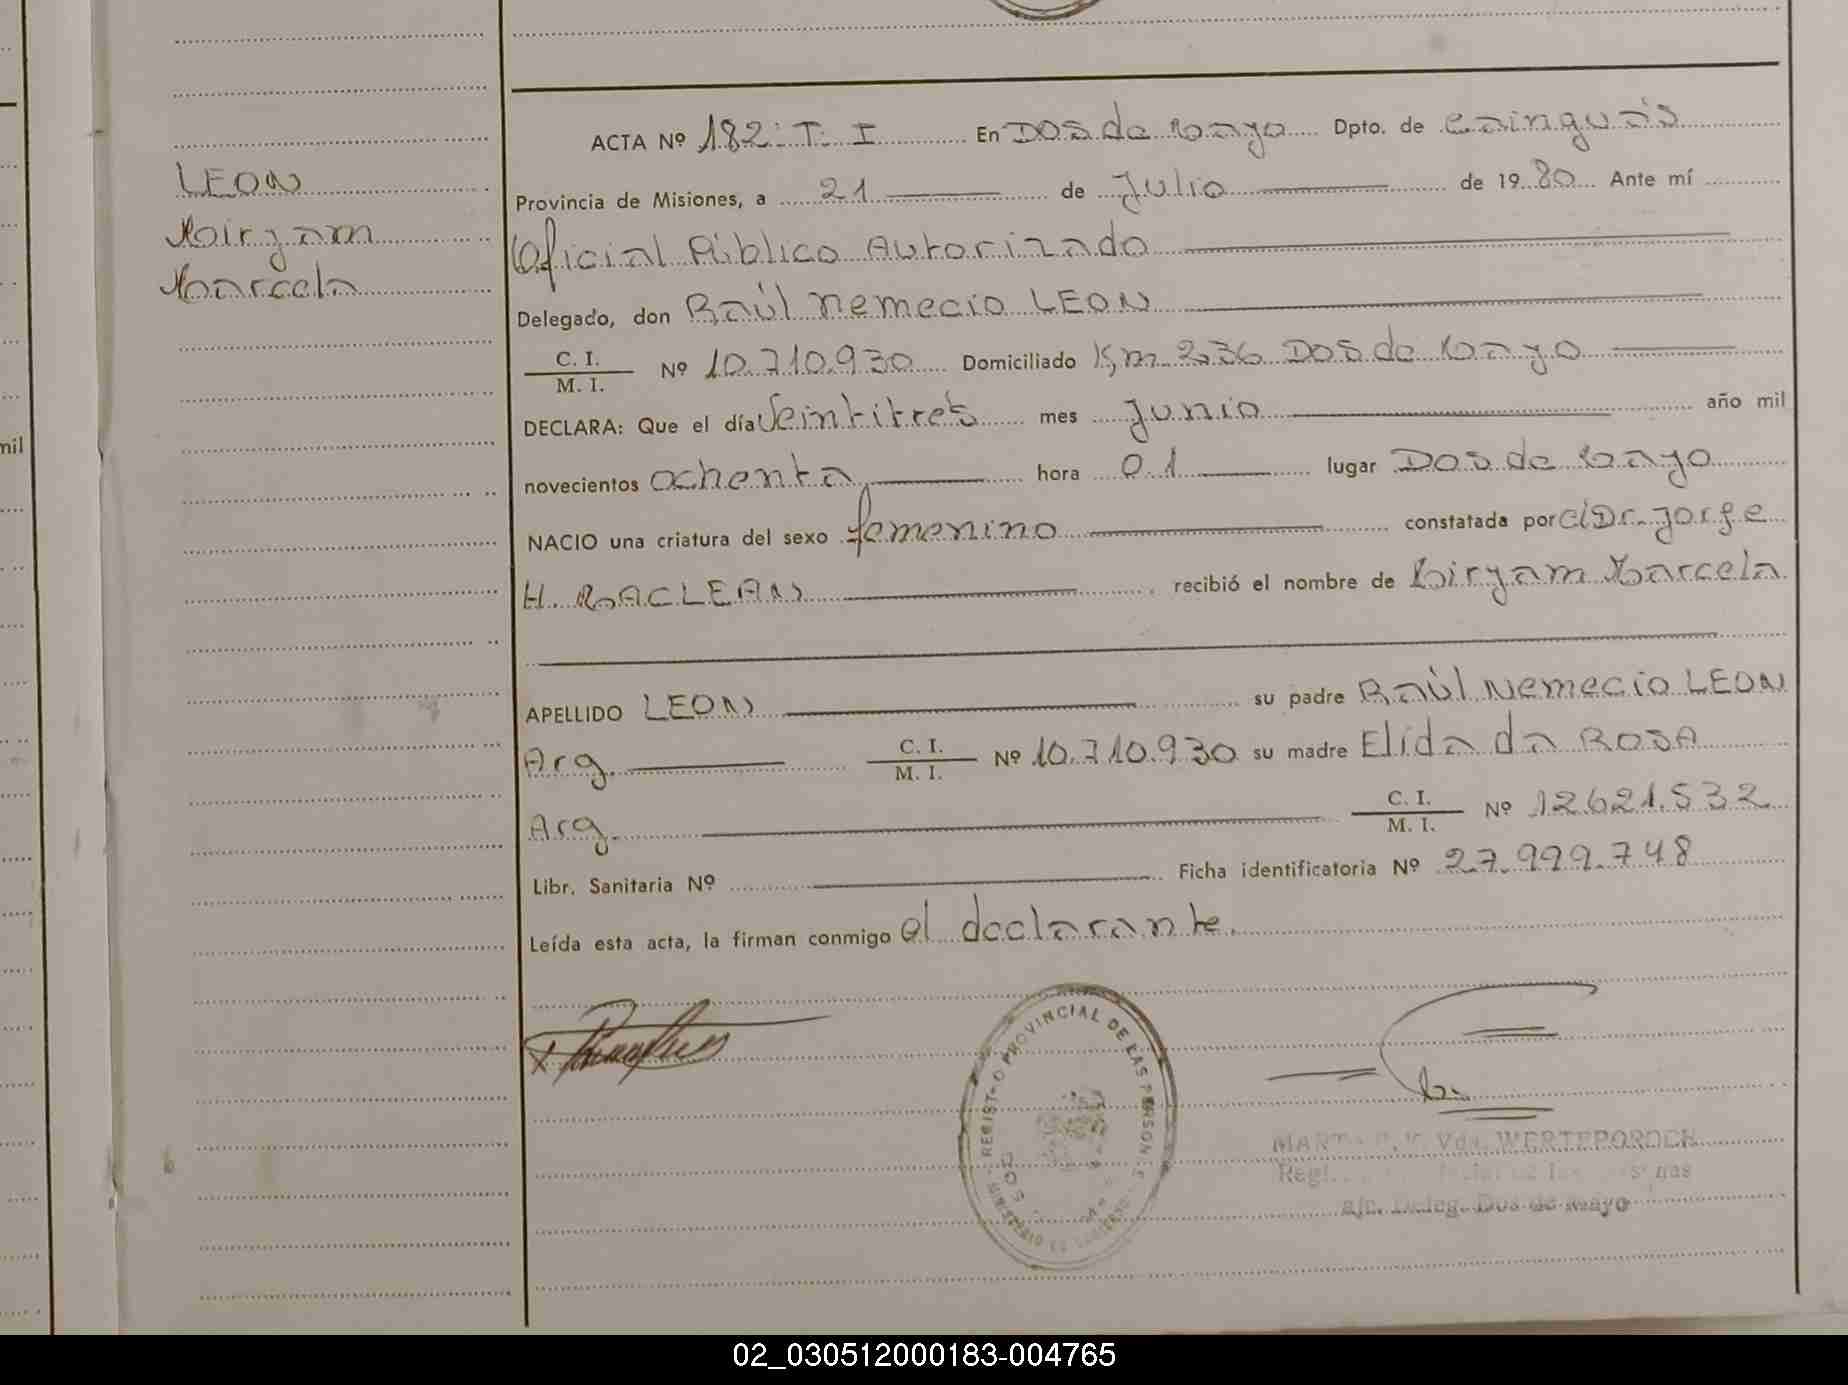 LEON
Miryam
Marcela
ACTA Nº 182: T: I En Dos de Mayo Dpto. de Cainguás
Provincia de Misiones, a 21 de Julio de 1980 Ante mí
Oficial Público Autorizado
Delegado, don Raúl Nemecio LEON
C. I.
M. I. Nº 10.710.930 Domiciliado Km 236 Dos de Mayo
DECLARA: Que el día Veintitrés mes Junio año mil
novecientos ochenta hora 01 lugar Dos de Mayo
NACIO una criatura del sexo femenino constatada por el Dr. Jorge
H. MACLEAN recibió el nombre de Miryam Marcela
APELLIDO LEON su padre Raúl Nemecio LEON
Arg. C. I. M. I. Nº 10.710.930 su madre Elida da ROSA
Arg. C. I. M. I. Nº 12621.532
Libr. Sanitaria Nº Ficha identificatoria Nº 27.999.748
Leída esta acta, la firman conmigo el declarante.
REGISTRO PROVINCIAL DE LAS PERSONAS
Vda. WERTEPOROCH
a/c. Deleg. Dos de Mayo
mil
02_030512000183-004765